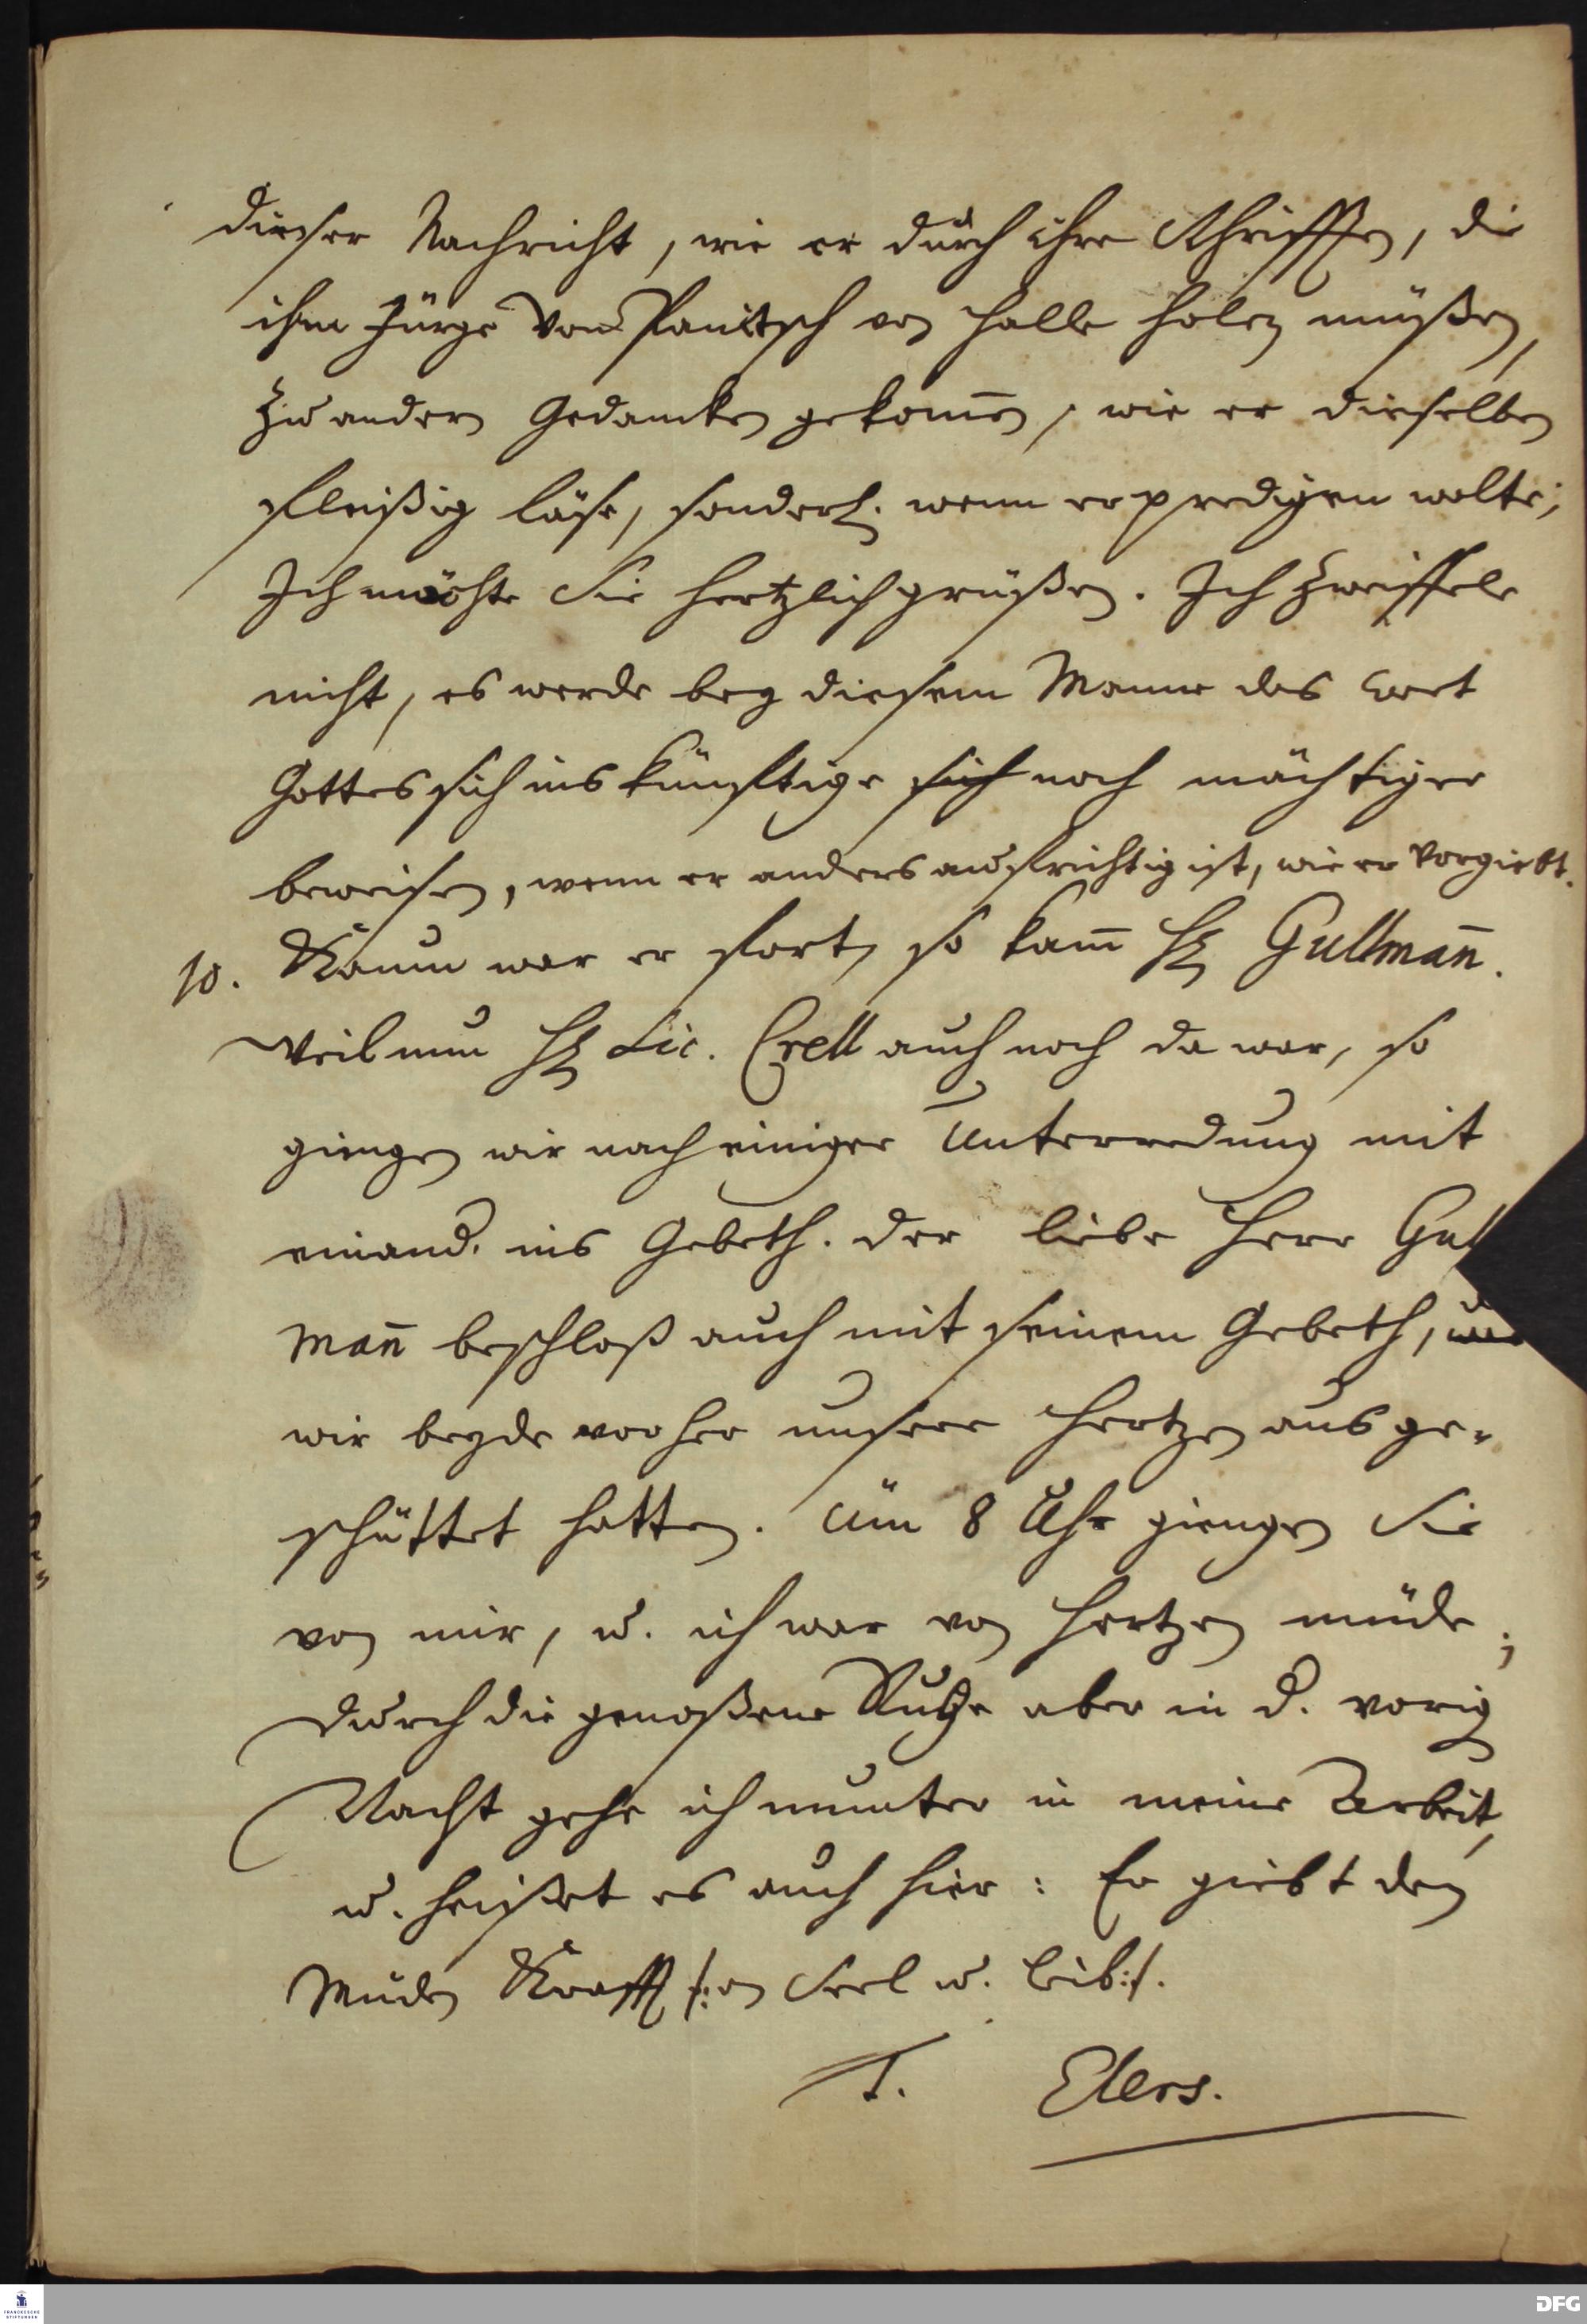 dieser Nachricht, wie er durch ihre Schrifften, die
ihm Jürge von Panitsch von Halle holen müßen,
zu andern Gedancken gekommen, wie er dieselben
fleißig läse, sonderl. wenn er predigen wolte;
Ich möchte Sie hertzlich grüßen. Ich zweiffele
nicht, es werde bey diesem Manne das Wort
Gottes sich ins künfftige sich noch mächtiger
beweisen, wenn er anders aufrichtig ist, wie er vorgiebt.
10. Kaum war er fort, so kam̅ H. Gullman̅.
Weil nun H. Lic. Crell auch noch da war, so
giengen wir nach einiger Unterredung mit
einand. ins Gebeth. Der liebe Herr Gul
man̅ beschloß auch mit seinem Gebeth,
wir beyde vorher unsere Hertzen ausge-
schüttet hatten. Um 8 Uhr giengen Sie
von mir, u. ich war von Hertzen müde;
Durch die genoßene Ruhe aber in d. vorig
Nacht gehe ich munter in meine Arbeit,
u. heißet es auch hier: Er giebt den
Müden Krafft /: an Seel u. Leib :/.
T. Elers.
FRANCKESCHE
STIFTUNGEN
DFG